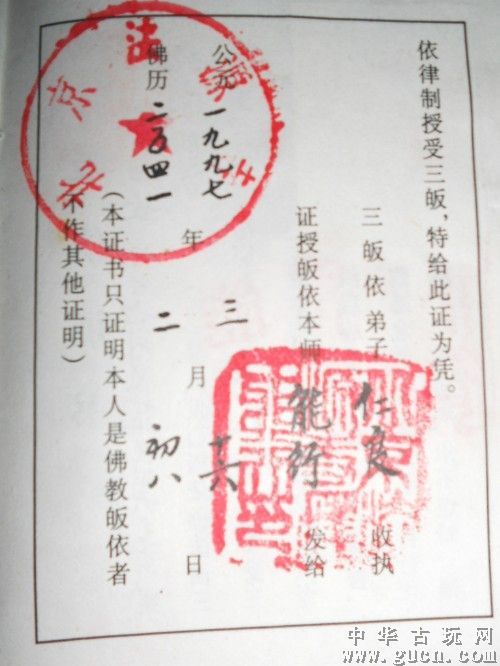 依律制授受三皈，特给此证为凭。
三皈依弟子 仁良 收执
证授皈依本师 能行 发给
公元一九九七 三 十六
年 月 日
佛历二五四一 二 初八
（本证书只证明本人是佛教皈依者
不作其他证明）
北京法源寺
中华古玩网
www.gucn.com